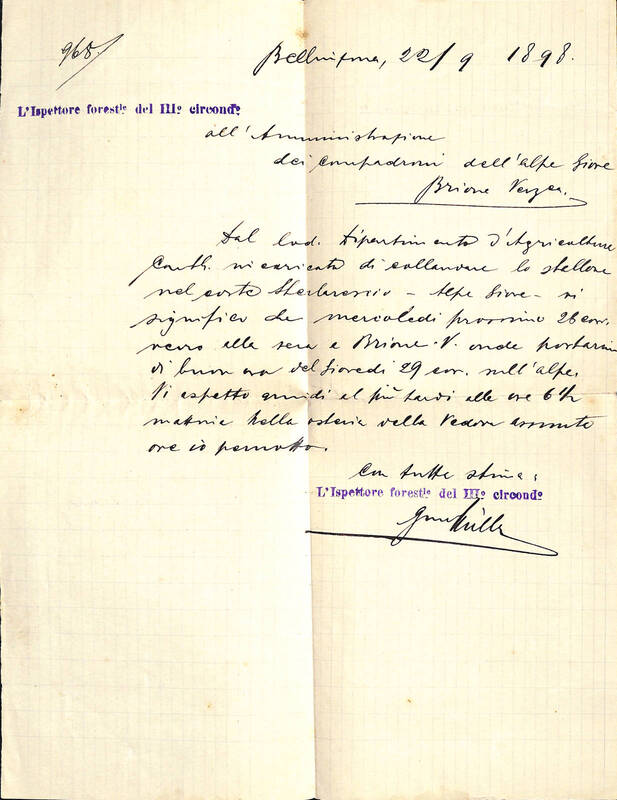 968
Bellinzona, 22/9 1898.
L'Ispettore forestle del IIIo circondo
all'Amministrazione
dei compadroni dell'alpe Giove
Brione Verzca.
Dal lod. Dipartimento d'Agricoltura
Cant. incaricato di collaudare lo stallone
nel corte - Alpe Giove - vi
significo che mercoledi prossimo 28 corr.
verro alla sera a Brione-V. onde portarmi
di buon ora del Giovedi 29 corr. sull'alpe.
Vi aspetto quindi al più tardi alle ore 6 ½
mattina nella osteria della Vedova
ove io pernotto.
Con tutta stima:
L'Ispettore forestle del IIIo circondo